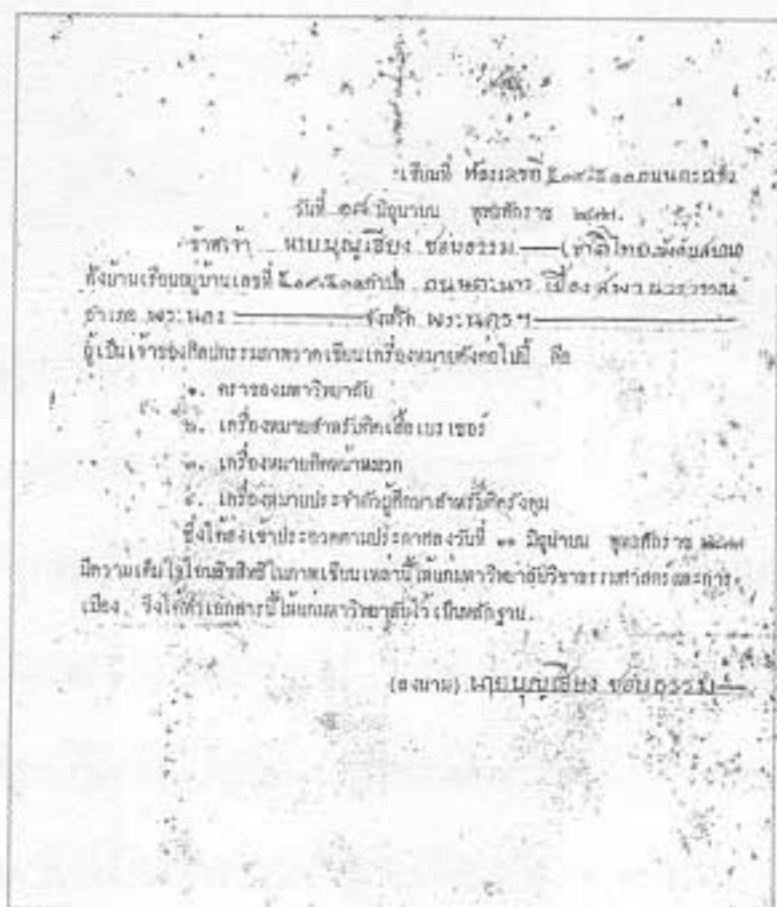 เขียนที่ ห้องเลขที่
วันที่ ๑๘ มิถุนายน พุทธศักราช ๒๔๗๗.
ข้าพเจ้า นายบุญเฮียง ชอบธรรม (ชาติไทย,บังคับสยาม)
ตั้งบ้านเรือนอยู่บ้านเลขที่ ตำบล ถนน เชิงสพาน
อำเภอ พระนคร จังหวัด พระนครฯ
ผู้เป็นเจ้าของศิลปกรรมภาพวาดเขียนเครื่องหมายดังต่อไปนี้ คือ
๑. ตราของมหาวิทยาลัย
๒. เครื่องหมายสำหรับติดเสื้อเบรเซอร์
๓. เครื่องหมายติดหน้าหมวก
๔. เครื่องหมายประจำตัวผู้ศึกษาสำหรับติดรังดุม
ซึ่งได้ส่งเข้าประกวดตามประกาศลงวันที่ ๑๑ มิถุนายน พุทธศักราช ๒๔๗๗
มีความเต็มใจโอนลิขสิทธิ์ในภาพเขียนเหล่านี้ให้แก่มหาวิทยาลัยวิชาธรรมศาสตร์และการ
เมือง, จึงได้ทำเอกสารนี้ให้แก่มหาวิทยาลัยไว้เป็นหลักฐาน.
(ลงนาม) นายบุญเฮียง ชอบธรรม